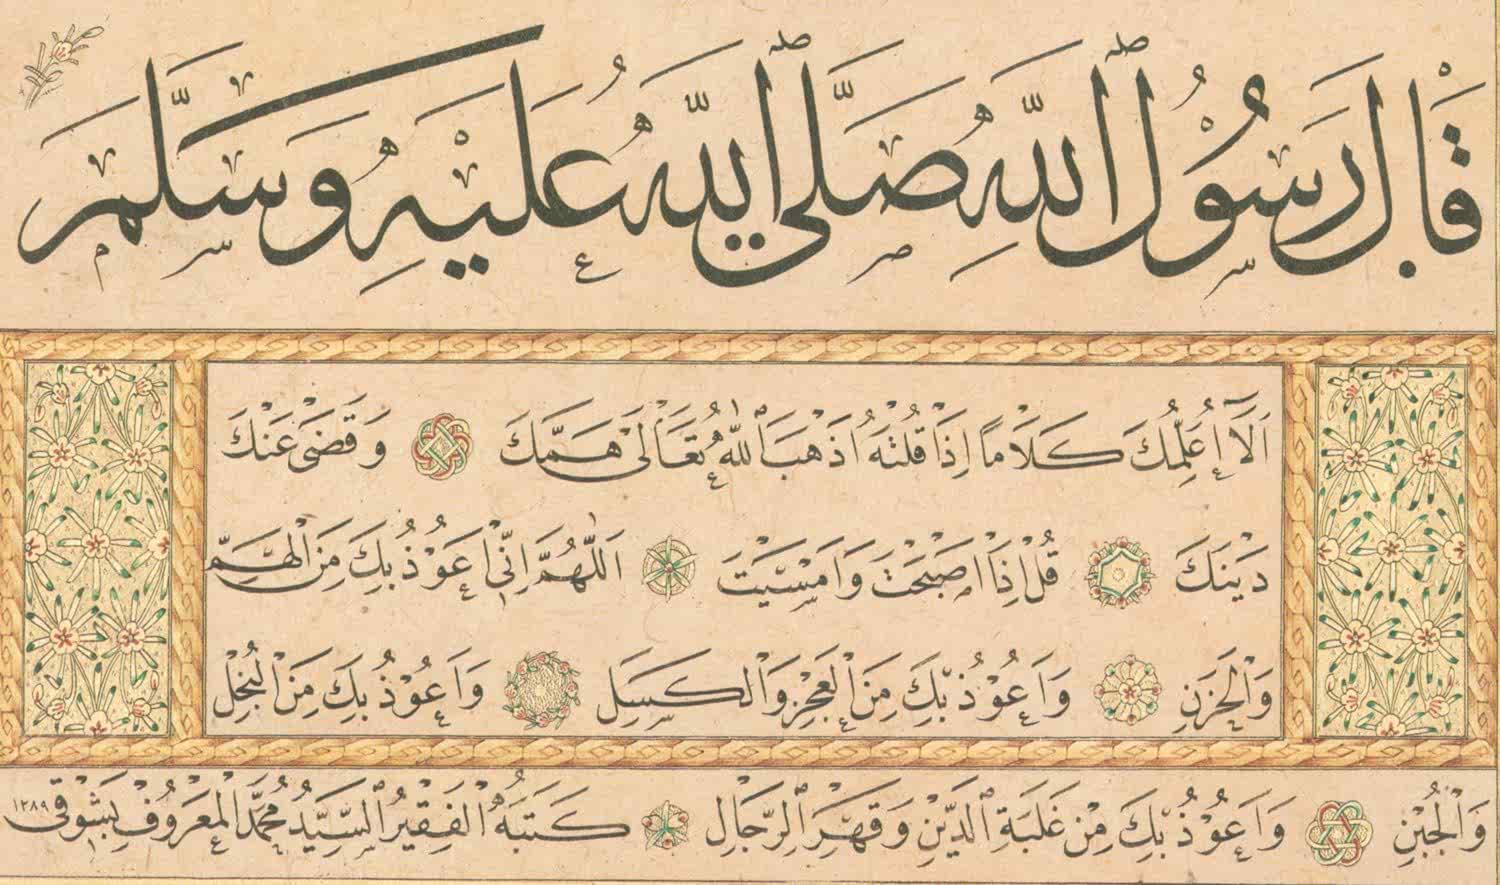 قَالَ رَسُولُ ٱللّٰهِ صَلَّى ٱللّٰهُ عَلَيْهِ وَسَلَّمَ
اَلَآ اُعَلِّمُكَ كَلَامًا اِذَا قُلْتَهُ اَذْهَبَ ٱللّٰهُ تَعَالَى هَمَّكَ وَقَضَى عَنْكَ
دَيْنَكَ قُلْ اِذَا اَصْبَحْتَ وَاَمْسَيْتَ اَللّٰهُمَّ اِنِّى اَعُوْذُ بِكَ مِنَ الْهَمِّ
وَالْحَزَنِ وَاَعُوْذُ بِكَ مِنَ الْعَجْزِ وَالْكَسَلِ وَاَعُوْذُ بِكَ مِنَ الْبُخْلِ
وَالْجُبْنِ وَاَعُوْذُ بِكَ مِنْ غَلَبَةِ ٱلدَّيْنِ وَقَهْرِ ٱلرِّجَالِ كَتَبَهُ الْفَقِيْرُ ٱلسَّيِّدُ مُحَمَّدُ الْمَعْرُوْفُ بِشَوْقِى ١٢٨٩